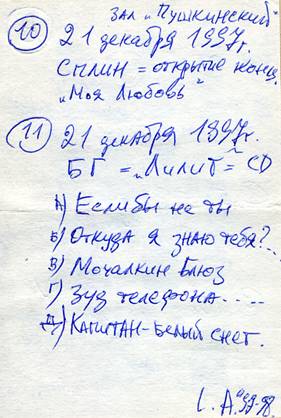 зал „Пушкинский"
10 21 декабря 1997г.
Сплин = открытие конц.
„Моя Любовь"
11 21 декабря 1997г.
БГ = „Лилит" = CD
А) Если бы не ты
Б) Откуда я знаю тебя?..
В) Мочалкин Блюз
Г) Зуд телефона.....
Д) Капитан-Белый снег.